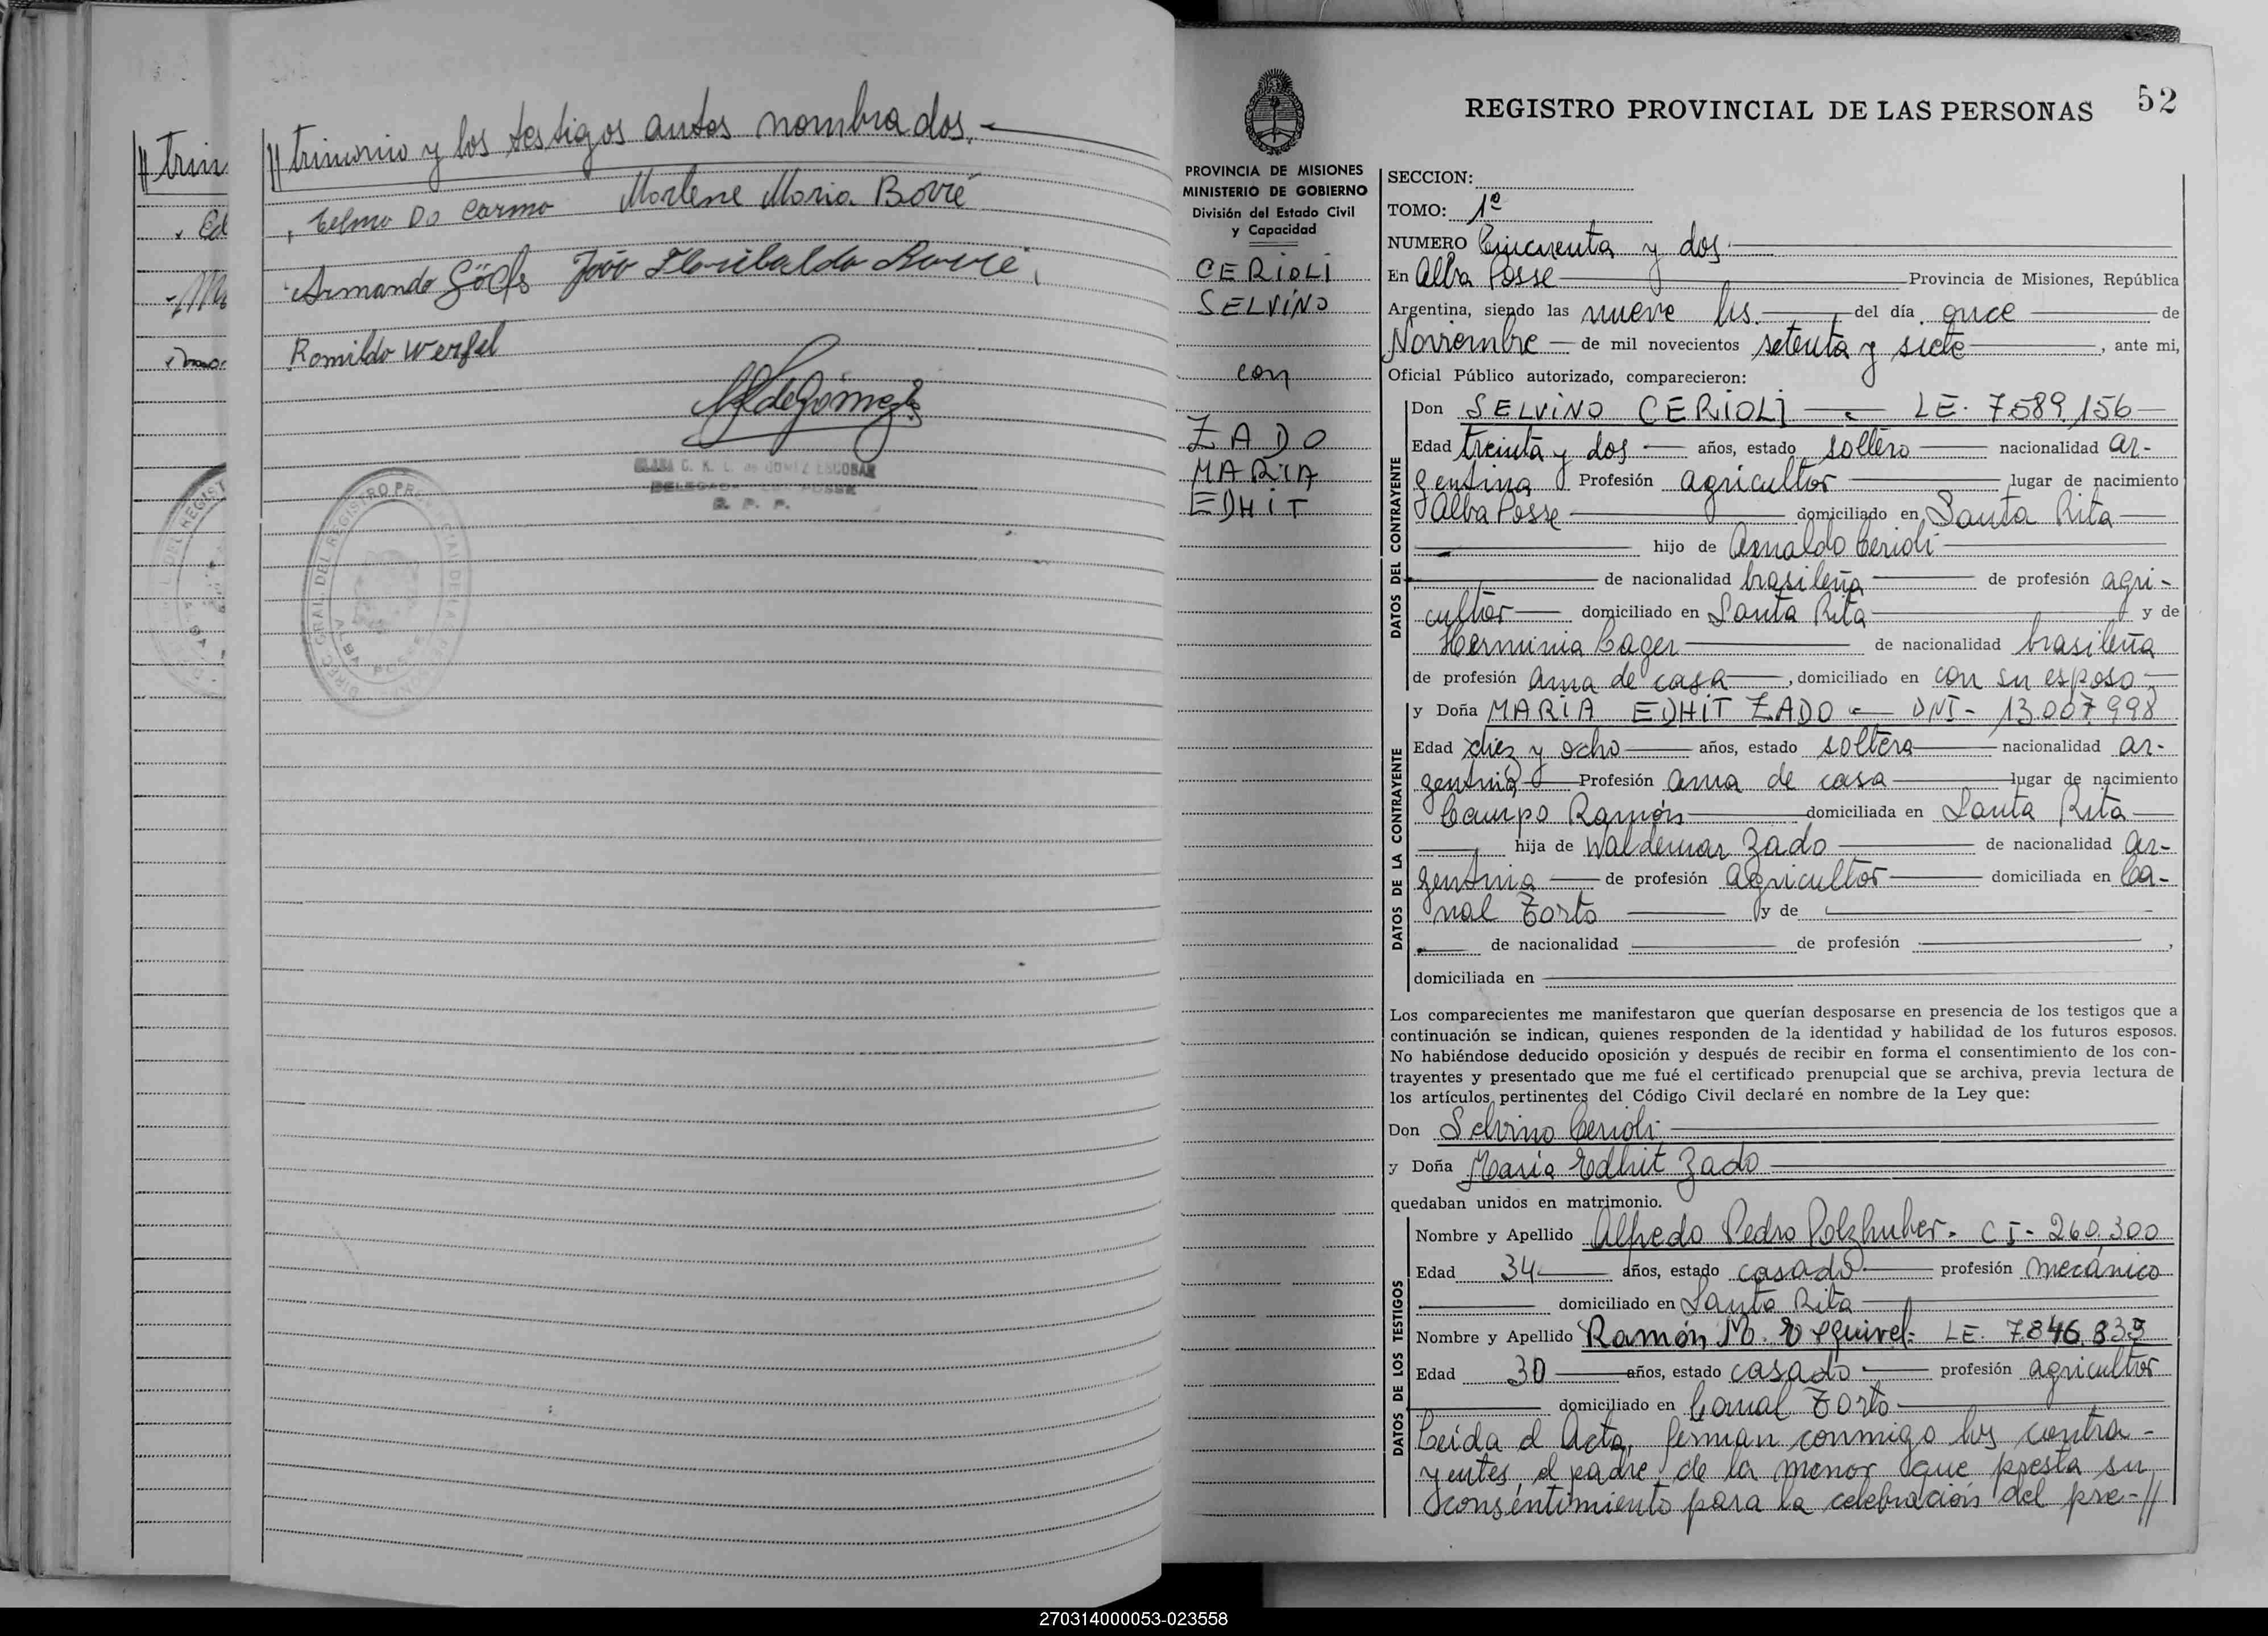 // trin
// trimonio y los testigos antes nombrados.-
Telmo Do Carmo Marlene Maria Bovré
Armando Göcks João Floribaldo Bovré
Romildo Werfel
ALBA POSSE
R. P. P.
REGISTRO PROVINCIAL DE LAS PERSONAS 52
PROVINCIA DE MISIONES
MINISTERIO DE GOBIERNO
División del Estado Civil
y Capacidad
CERIOLI
SELVINO
con
ZADO
MARIA
EDHIT
SECCION:
TOMO: 1º
NUMERO Cincuenta y dos
En Alba Posse Provincia de Misiones, República
Argentina, siendo las nueve hs. del día once de
Noviembre de mil novecientos setenta y siete, ante mi,
Oficial Público autorizado, comparecieron:
DATOS DEL CONTRAYENTE
Don SELVINO CERIOLI - LE. 7.589.156
Edad treinta y dos años, estado soltero nacionalidad ar-
gentina Profesión agricultor lugar de nacimiento
Alba Posse domiciliado en Santa Rita
hijo de Arnaldo Cerioli
de nacionalidad brasileña de profesión agri-
cultor domiciliado en Santa Rita y de
Herminia Cager de nacionalidad brasileña
de profesión ama de casa, domiciliado en con su esposo
DATOS DE LA CONTRAYENTE
y Doña MARIA EDHIT ZADO - DNI- 13.007.998
Edad diez y ocho años, estado soltera nacionalidad ar-
gentina Profesión ama de casa lugar de nacimiento
Campo Ramón domiciliada en Santa Rita
hija de Waldemar Zado de nacionalidad ar-
gentina de profesión agricultor domiciliada en Ca-
nal Torto y de
de nacionalidad de profesión ,
domiciliada en
Los comparecientes me manifestaron que querían desposarse en presencia de los testigos que a
continuación se indican, quienes responden de la identidad y habilidad de los futuros esposos.
No habiéndose deducido oposición y después de recibir en forma el consentimiento de los con-
trayentes y presentado que me fué el certificado prenupcial que se archiva, previa lectura de
los artículos pertinentes del Código Civil declaré en nombre de la Ley que:
Don Selvino Cerioli
y Doña María Edhit Zado
quedaban unidos en matrimonio.
DATOS DE LOS TESTIGOS
Nombre y Apellido Alfredo Pedro Polzhuber. CI- 260.300
Edad 34 años, estado casado profesión mecánico
domiciliado en Santa Rita
Nombre y Apellido Ramón M. Esquivel- LE. 7.846.839
Edad 30 años, estado casado profesión agricultor
domiciliado en Canal Torto
Leída el Acta, firman conmigo los contra-
yentes, el padre de la menor que presta su
consentimiento para la celebración del pre-//
270314000053-023558